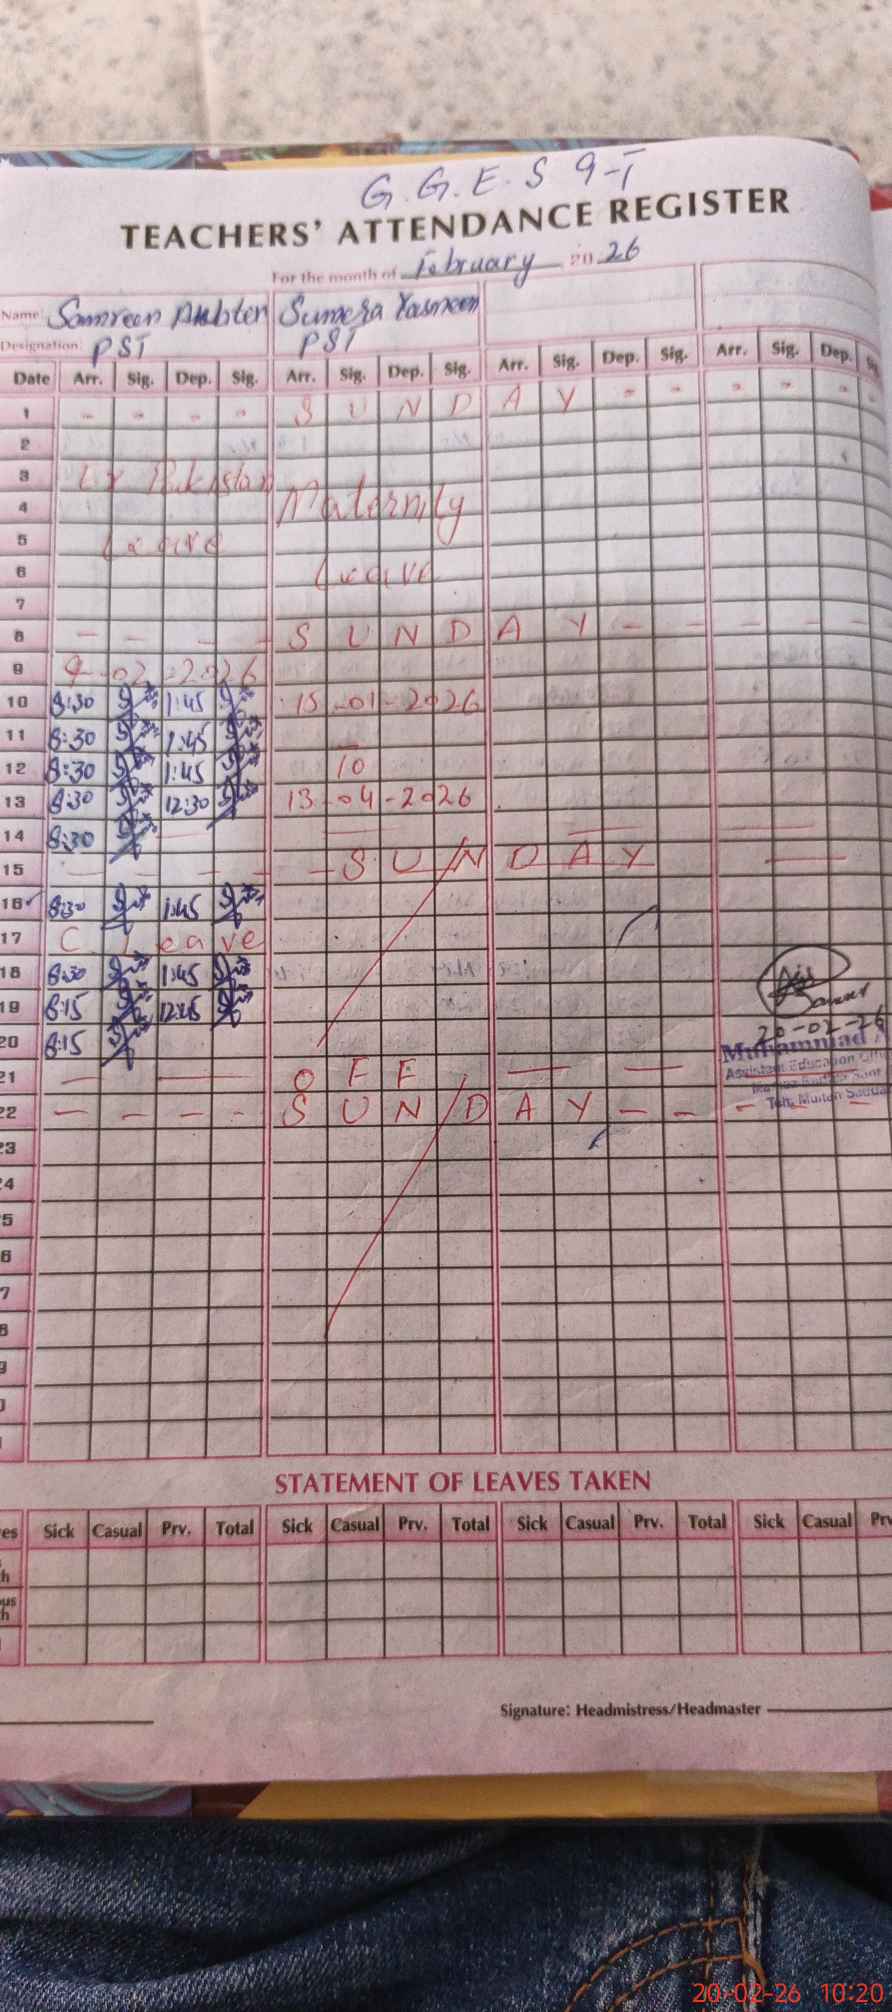 G.G.E.S 9-T
TEACHERS' ATTENDANCE REGISTER
For the month of February 20 26
Name Samreen Sumera Yasmeen
Designation PST PST
Date Arr. Sig. Dep. Sig. Arr. Sig. Dep. Sig. Arr. Sig. Dep. Sig. Arr. Sig. Dep.
1 - - - - S U N D A Y - - - - -
2
3 Ex Pakistan
4 Maternity
5 Leave
6 Leave
7
8 - - - - S U N D A Y - - - - -
9 9-02-2026
10 8:30 1:45 15-01-2026
11 8:30 1:45
12 8:30 1:45 To
13 8:30 12:30 13-04-2026
14 8:30
15 - - - - - S U N D A Y
16 8:30 1:45
17 C Leave
18 8:30 1:45
19 8:15 12:45
20 8:15
20-02-26
Muhammad
Assistant Education
21 O F F
22 - - - - S U N D A Y - - - -
23
4
5
6
7
8
9
STATEMENT OF LEAVES TAKEN
es Sick Casual Prv. Total Sick Casual Prv. Total Sick Casual Prv. Total Sick Casual Prv
h
us
h
Signature: Headmistress/Headmaster
20-02-26 10:20